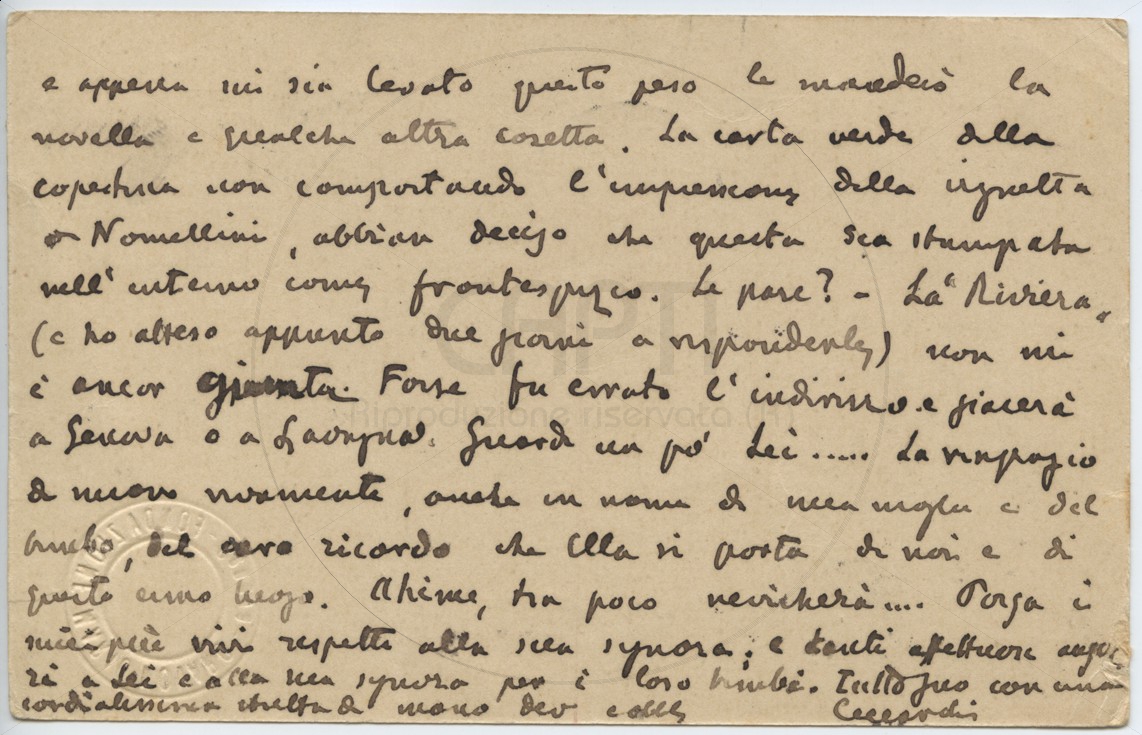 e appena mi sia levato questo peso le manderò la
novella e qualche altra cosetta. La carta verde della
copertina non comportando l'impressione della vignetta
Nomellini, abbiam deciso che questa sia stampata
nell'interno come frontespizio. Le pare? - "La Riviera"
(e ho atteso appunto due giorni a risponderle) non mi
è ancor giunta. Forse fu errato l'indirizzo e giacerà
a Genova o a Lavagna. Guardi un pò Lei..... La ringrazio
di nuovo vivamente, anche in nome di mia moglie e del
bimbo, del caro ricordo che Ella si porta di noi e di
questo luogo. Ahimé, tra poco nevicherà.... Porga i
miei più vivi rispetti alla sua signora: e tanti affettuosi augu-
ri a Lei e alla sua signora per i loro bimbi. Tutto suo con una
cordialissima stretta di mano Ceccardi
CHPTI
Riproduzione riservata (R)